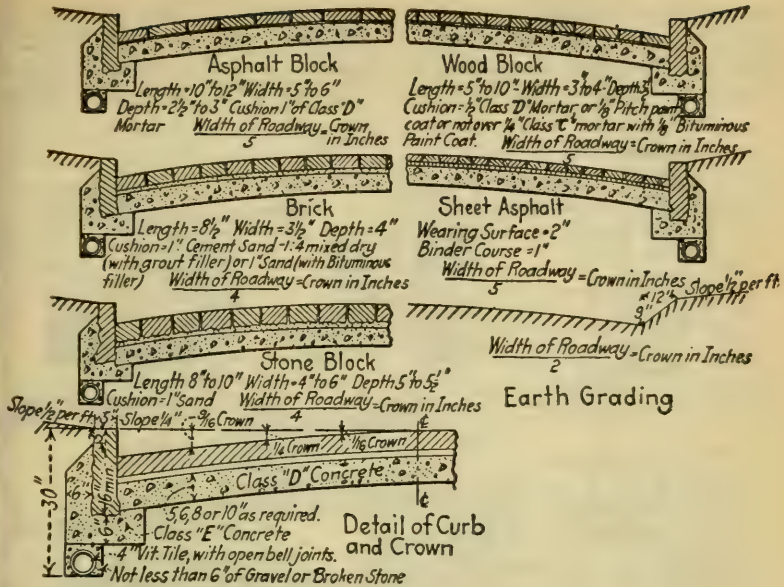 Asphalt Block
Length=10"to12" Width=5"to 6"
Depth=2½"to3" Cushion 1"of Class "D"
Mortar Width of Roadway = Crown in Inches
5
Wood Block
Length=5"to10"- Width=3"to4" Depth 3½"
Cushion=½"Class "D" Mortar, or ⅛" Pitch paint
coat or not over ¼" Class "C" mortar with ⅛" Bituminous
Paint Coat. Width of Roadway = Crown in Inches
5
Brick
Length=8½" Width=3½" Depth=4"
Cushion=1" Cement Sand-1:4 mixed dry
(with grout filler) or 1" Sand (with Bituminous
filler) Width of Roadway = Crown in Inches
4
Sheet Asphalt
Wearing Surface=2"
Binder Course=1"
Width of Roadway = Crown in Inches
5
12"
Slope ½" per ft.
9"
Width of Roadway = Crown in Inches
2
Earth Grading
Stone Block
Length 8"to10" Width=4"to6" Depth 5"to5½"
Cushion=1"Sand Width of Roadway = Crown in Inches
4
Slope ½" per ft. 5" Slope ¼" 9/16 Crown
¼ Crown 1/16 Crown
Class "D" Concrete
30"
6"
16"min.
6"
5,6,8 or 10" as required.
Class "E" Concrete
4" Vit. Tile, with open bell joints.
Not less than 6" of Gravel or Broken Stone
Detail of Curb
and Crown